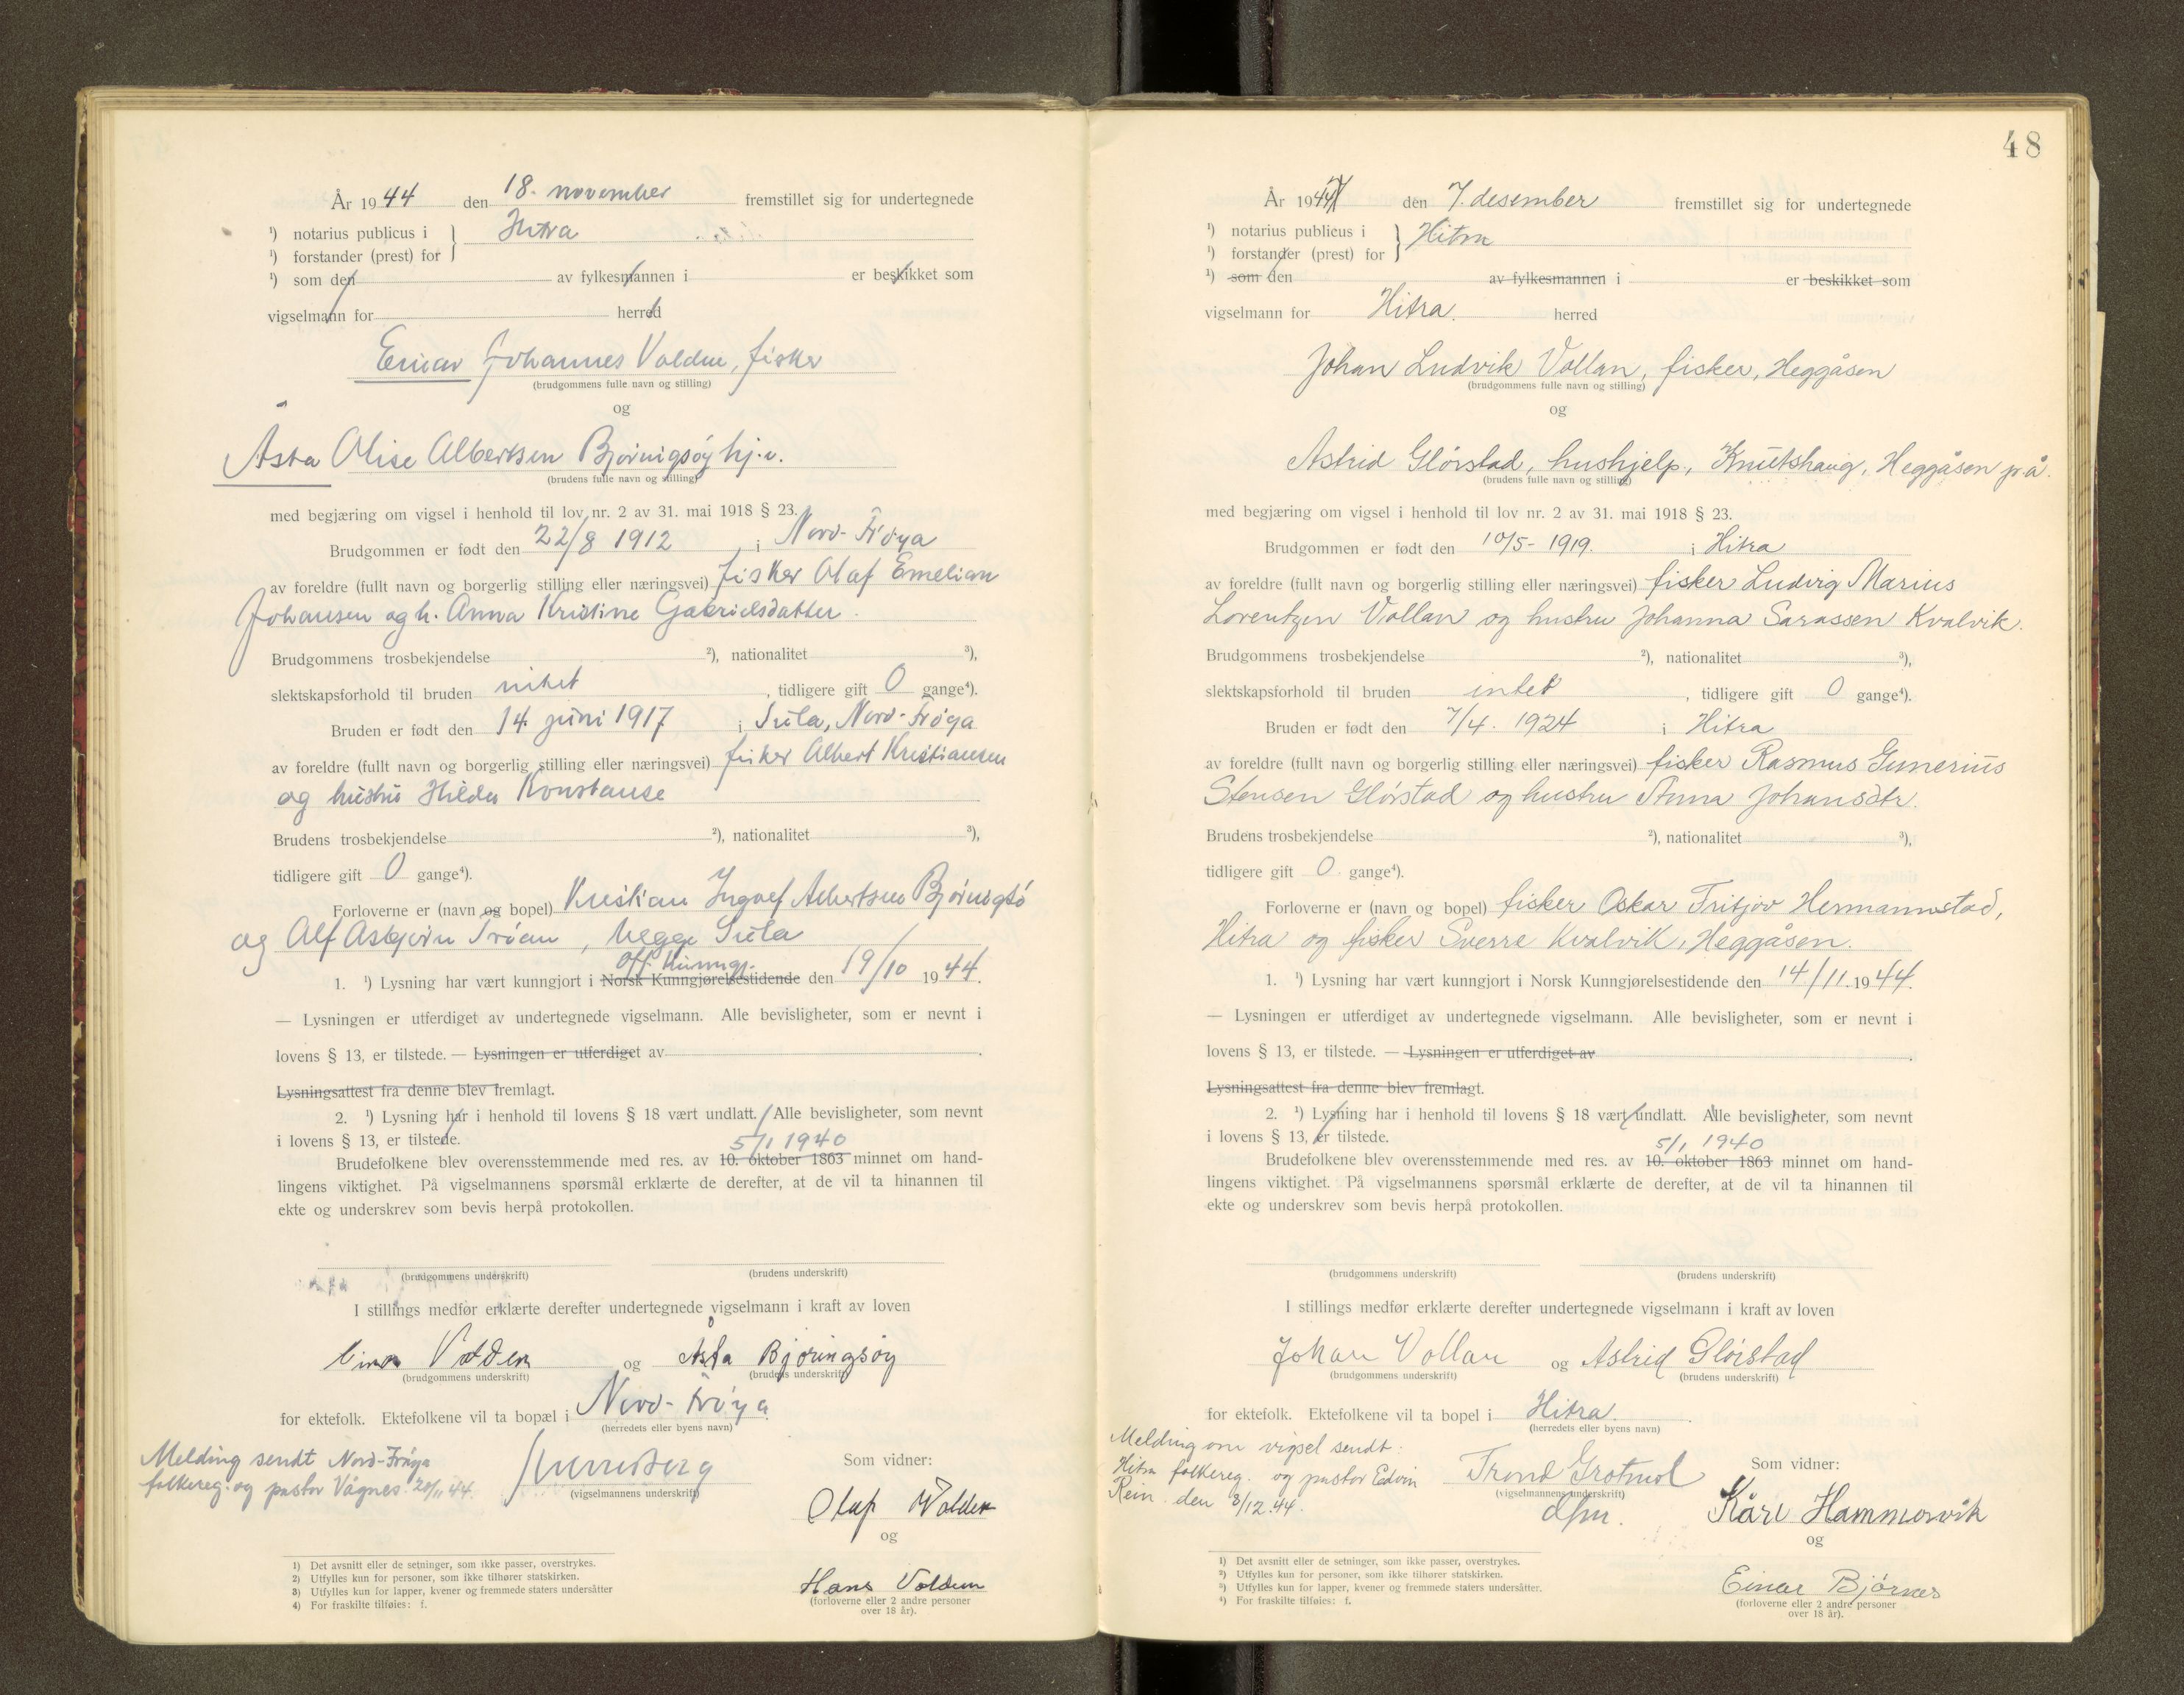 År 1944 den 18. november fremstillet sig for undertegnede
¹) notarius publicus i } Hitra
¹) forstander (prest) for
¹) som den av fylkesmannen i er beskikket som
vigselmann for herred
Einar Johannes Valden, fisker
(brudgommens fulle navn og stilling)
og
Åsta Olise Albertsen Bjørnigsøy hj.v.
(brudens fulle navn og stilling)
med begjæring om vigsel i henhold til lov nr. 2 av 31. mai 1918 § 23.
Brudgommen er født den 22/8 1912 i Nord-Frøya
av foreldre (fullt navn og borgerlig stilling eller næringsvei) fisker Olaf Emelian
Johansen og h. Anna Kristine Gabrielsdatter.
Brudgommens trosbekjendelse ²), nationalitet ³),
slektskapsforhold til bruden intet, tidligere gift 0 gange⁴).
Bruden er født den 14. juni 1917 i Sula, Nord-Frøya
av foreldre (fullt navn og borgerlig stilling eller næringsvei) fisker Albert Kristiansen
og hustru Hilda Konstanse
Brudens trosbekjendelse ²), nationalitet ³),
tidligere gift 0 gange⁴).
Forloverne er (navn og bopel) Kristian Ingolf Albertsen Bjørnigsø
og Alf Asbjørn Trøan, begge Sula
off. kunngj.
1. ¹) Lysning har vært kunngjort i Norsk Kunngjørelsestidende den 19/10 1944.
— Lysningen er utferdiget av undertegnede vigselmann. Alle bevisligheter, som er nevnt i
lovens § 13, er tilstede. — Lysningen er utferdiget av .
Lysningsattest fra denne blev fremlagt.
2. ¹) Lysning har i henhold til lovens § 18 vært undlatt. Alle bevisligheter, som nevnt
i lovens § 13, er tilstede.
5/1 1940
Brudefolkene blev overensstemmende med res. av 10. oktober 1863 minnet om hand-
lingens viktighet. På vigselmannens spørsmål erklærte de derefter, at de vil ta hinannen til
ekte og underskrev som bevis herpå protokollen.
(brudgommens underskrift) (brudens underskrift)
I stillings medfør erklærte derefter undertegnede vigselmann i kraft av loven
Einar Valden og Åsta Bjøringsøy
(brudgommens underskrift) (brudens underskrift)
for ektefolk. Ektefolkene vil ta bopæl i Nord-Frøya
(herredets eller byens navn)
Melding sendt Nord-Frøya
folkereg. og pastor Vågnes 20/11 44.
(vigselmannens underskrift)
Som vidner:
Olaf Walden
og
Hans Valden
(forloverne eller 2 andre personer
over 18 år).
1) Det avsnitt eller de setninger, som ikke passer, overstrykes.
2) Utfylles kun for personer, som ikke tilhører statskirken.
3) Utfylles kun for lapper, kvener og fremmede staters undersåtter
4) For fraskilte tilføies: f.
48
År 1944 den 7. desember fremstillet sig for undertegnede
¹) notarius publicus i } Hitra
¹) forstander (prest) for
¹) som den av fylkesmannen i er beskikket som
vigselmann for Hitra. herred
Johan Ludvik Vollan, fisker, Heggåsen
(brudgommens fulle navn og stilling)
og
Astrid Glørstad, hushjelp, Knutshaug, Heggåsen på.
(brudens fulle navn og stilling)
med begjæring om vigsel i henhold til lov nr. 2 av 31. mai 1918 § 23.
Brudgommen er født den 10/5- 1919. i Hitra
av foreldre (fullt navn og borgerlig stilling eller næringsvei) fisker Ludvig Marius
Lorentzen Vollan og hustru Johanna Sarassen Kvalvik.
Brudgommens trosbekjendelse ²), nationalitet ³),
slektskapsforhold til bruden intet, tidligere gift 0 gange⁴).
Bruden er født den 7/4. 1924 i Hitra
av foreldre (fullt navn og borgerlig stilling eller næringsvei) fisker Rasmus Gunerius
Stensen Glørstad og hustru Anna Johansdtr.
Brudens trosbekjendelse ²), nationalitet ³),
tidligere gift 0 gange⁴).
Forloverne er (navn og bopel) fisker Oskar Tritjov Hermannstad,
Hitra og fisker Sverre Kvalvik, Heggåsen.
1. ¹) Lysning har vært kunngjort i Norsk Kunngjørelsestidende den 14/11. 1944.
— Lysningen er utferdiget av undertegnede vigselmann. Alle bevisligheter, som er nevnt i
lovens § 13, er tilstede. — Lysningen er utferdiget av .
Lysningsattest fra denne blev fremlagt.
2. ¹) Lysning har i henhold til lovens § 18 vært undlatt. Alle bevisligheter, som nevnt
i lovens § 13, er tilstede.
5/1 1940
Brudefolkene blev overensstemmende med res. av 10. oktober 1863 minnet om hand-
lingens viktighet. På vigselmannens spørsmål erklærte de derefter, at de vil ta hinannen til
ekte og underskrev som bevis herpå protokollen.
(brudgommens underskrift) (brudens underskrift)
I stillings medfør erklærte derefter undertegnede vigselmann i kraft av loven
Johan Vollan og Astrid Glørstad
(brudgommens underskrift) (brudens underskrift)
for ektefolk. Ektefolkene vil ta bopel i Hitra.
(herredets eller byens navn)
Melding om vigsel sendt:
Hitra folkereg. og pastor Edvin
Rein den 8/12.44.
Trond Grotnol
(vigselmannens underskrift)
dfm.
Som vidner:
Kåre Hammervik
og
Einar Bjørnes
(forloverne eller 2 andre personer
over 18 år).
¹) Det avsnitt eller de setninger, som ikke passer, overstrykes.
²) Utfylles kun for personer, som ikke tilhører statskirken.
³) Utfylles kun for lapper, kvener og fremmede staters undersåtter.
⁴) For fraskilte tilføies: f.